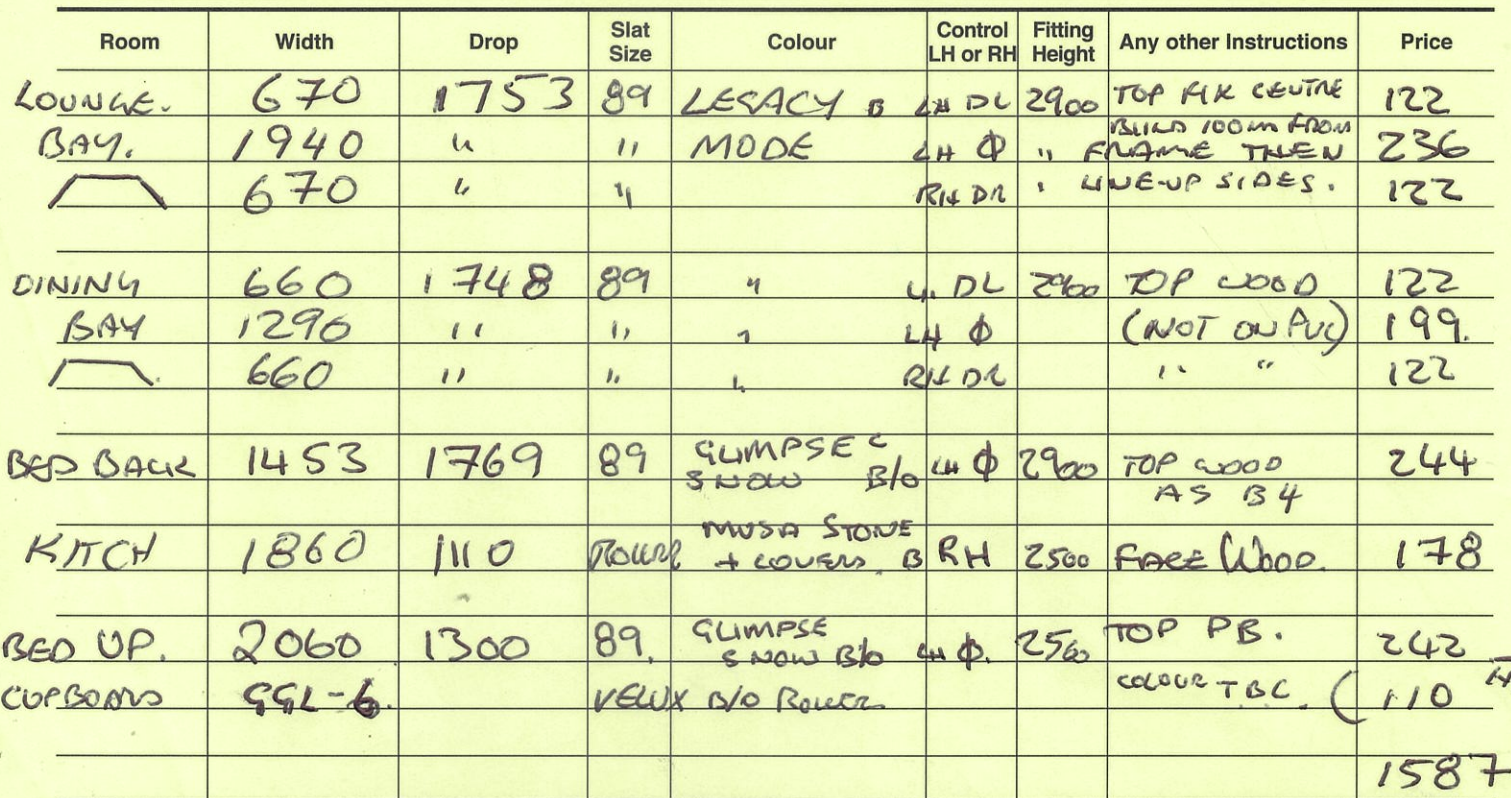 Room Width Drop Slat Size Colour Control LH or RH Fitting Height Any other Instructions Price
LOUNGE. 670 1753 89 LEGACY B LH DL 2900 TOP FIX CENTRE 122
BAY. 1940 " " MODE LH Φ " BUILD 100m FROM FRAME THEN 236
670 " " RH DR " LINE-UP SIDES. 122
DINING 660 1748 89 " L. DL 2900 TOP WOOD 122
BAY 1290 " " " LH Φ (NOT ON PVC) 199.
660 " " " RH DR " " 122
BED BACK 1453 1769 89 GLIMPSE C SNOW B/O LH Φ 2900 TOP WOOD AS B4 244
KITCH 1860 1110 ROLLER MUSA STONE + COVERS. B RH 2500 FACE WOOD. 178
BED UP. 2060 1300 89. GLIMPSE SNOW B/O LH Φ. 2560 TOP PB. 242
CUPBOARD GGL-6. VELUX B/O ROLLER COLOUR TBC. ( 110
1587